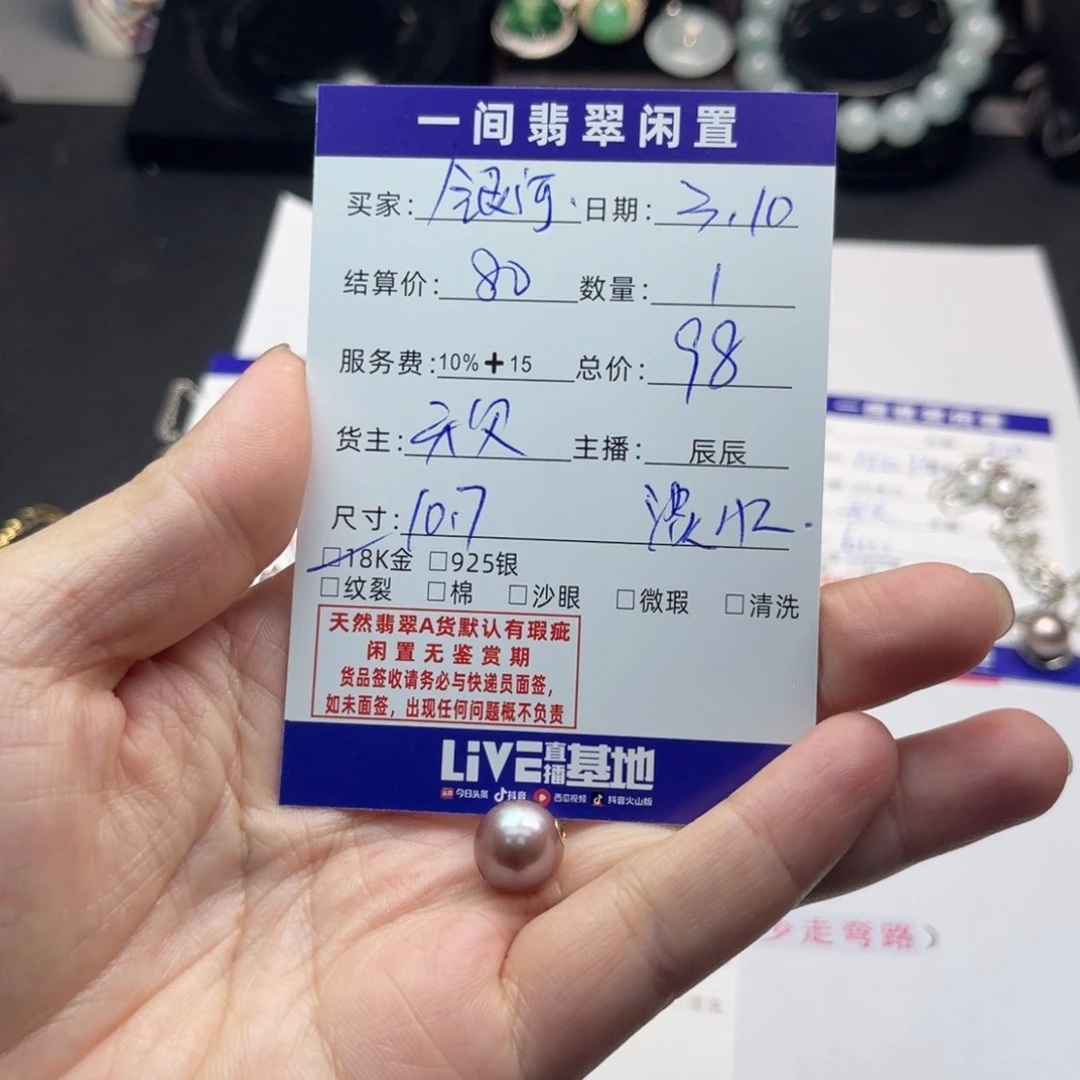 一间翡翠闲置
买家: 银河. 日期: 3.10
结算价: 80 数量: 1
服务费: 10%+15 总价: 98
货主: 天贝 主播: 辰辰
尺寸: 10.7
□18K金 □925银
□纹裂 □棉 □沙眼 □微瑕 □清洗
天然翡翠A货默认有瑕疵
闲置无鉴赏期
货品签收请务必与快递员面签,
如未面签，出现任何问题概不负责
LiVE直播基地
头条 今日头条 抖音 西瓜视频 抖音火山版
走弯路)